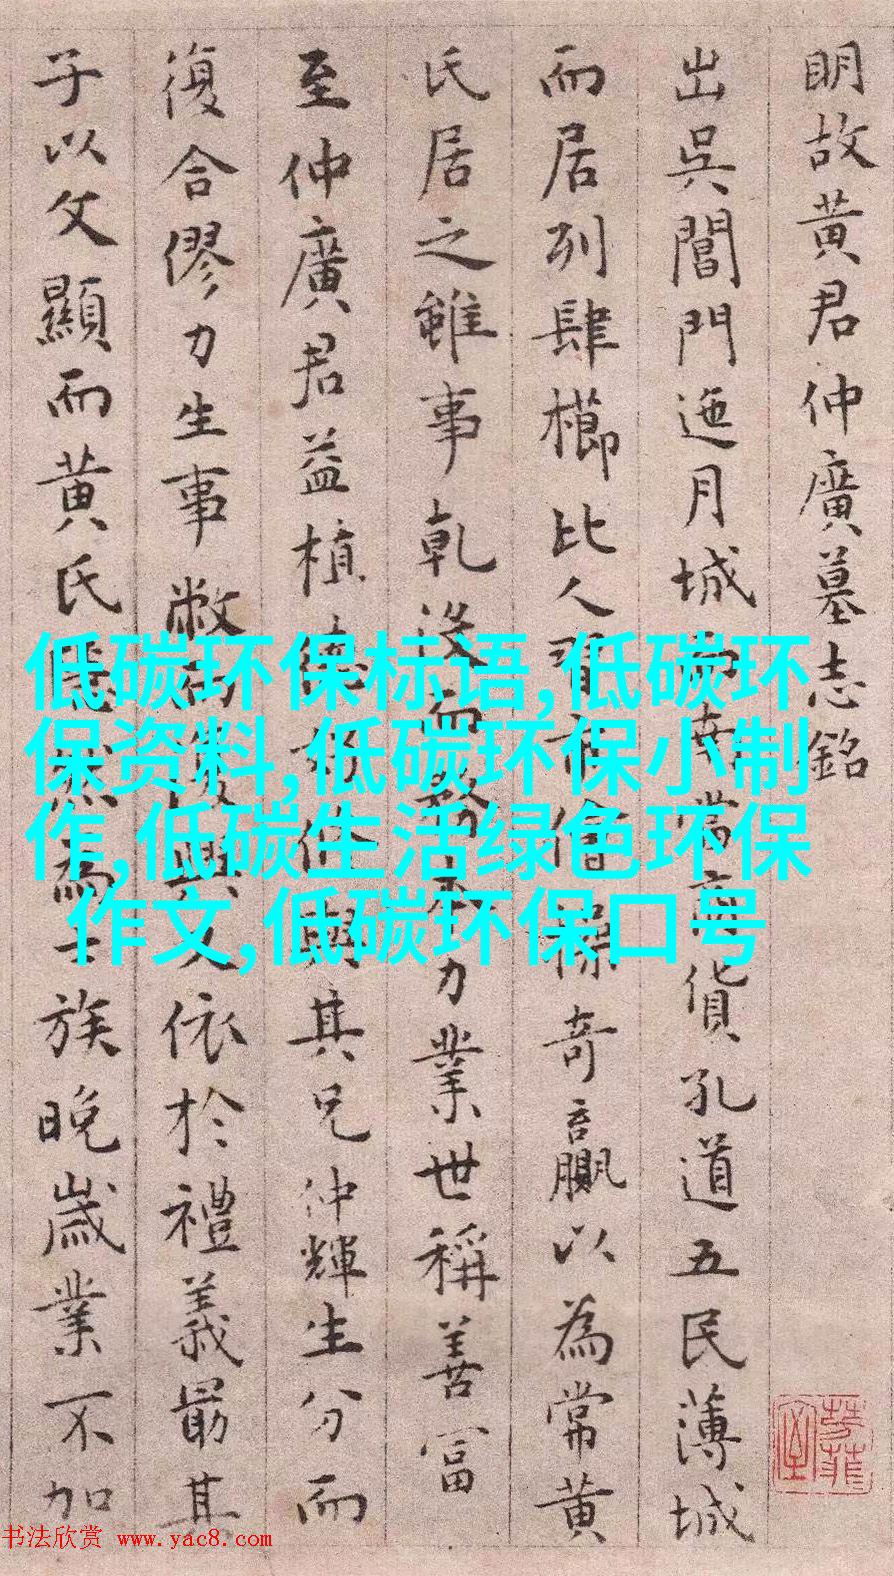 明故黄君仲廣墓志銘
出吳閶門迤月城而南常商貨孔道五民薄城
而居列肆櫛比人習市儈操奇贏以為常黄
氏居之雖事乾没而務本力業世稱善富
至仲廣君益植德好修與其兄仲輝生分而
復合僇力生事敝衣與人依於禮義最其
子以文顯而黄氏為士族晚歲業不加
低碳环保标语,低碳环
保资料,低碳环保小制
作,低碳生活绿色环保
作文,低碳环保口号
书法欣赏 www.yac8.com